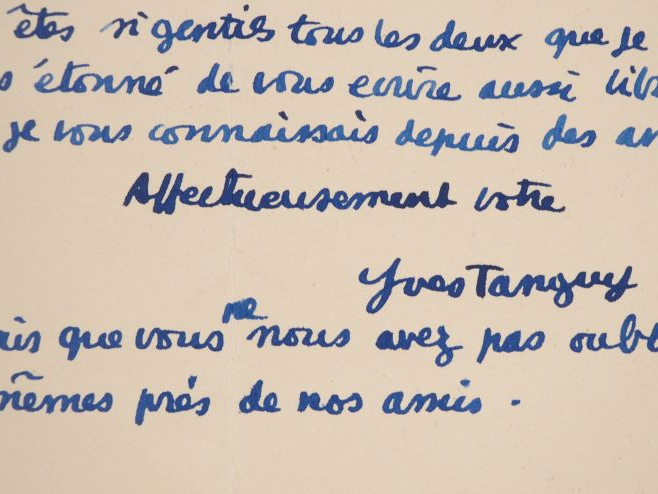 êtes si gentils tous les deux que je
étonné de vous ecrire aussi libr
je vous connaissais depuis des an
Affectueusement votre
Yves Tanguy
ais que vous ne nous avez pas oubl
mêmes près de nos amis.